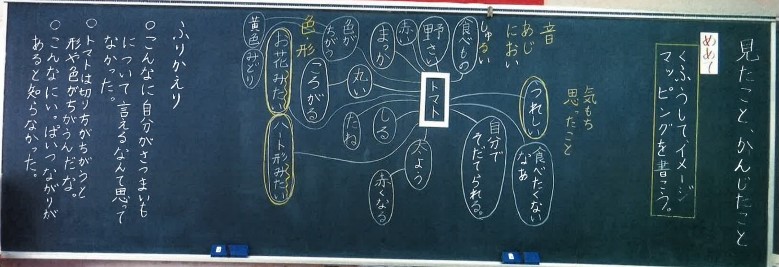 見たこと、かんじたこと
めあて
くふうして、イメージ
マッピングを書こう。
気もち
思ったこと
うれしい
食べたくない
なあ
自分で
そだてられる。
音
あじ
におい
しゅるい
食べもの
野さい
赤い
まっか
色が
ちがう
黄色
みどり
色
形
トマト
丸い
ころがる
お花みたい
ハート形みたい
しる
たね
太よう
赤くなる
ふりかえり
○こんなに自分がさつまいも
について言えるなんて思って
なかった。
○トマトは切り方がちがうと
形や色がちがうんだな。
○こんなにいっぱいつながりが
あると知らなかった。